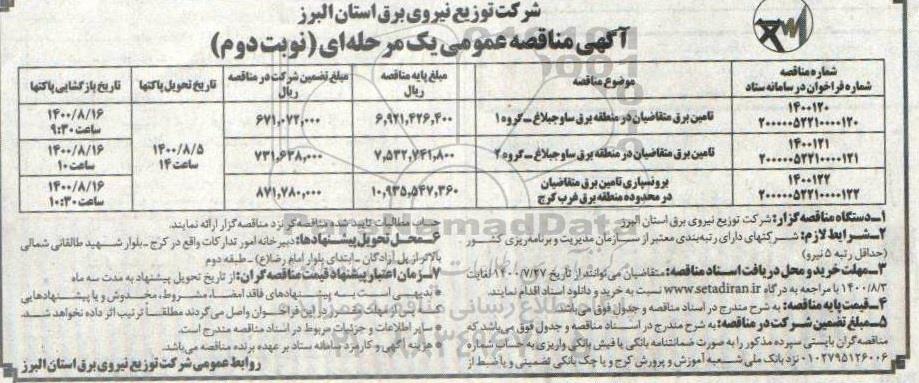 شرکت توزیع نیروی برق استان البرز
آگهی مناقصه عمومی یک مرحله‌ای (نوبت دوم)
شماره مناقصه شماره فراخوان در سامانه ستاد
موضوع مناقصه
مبلغ پایه مناقصه ریال
مبلغ تضمین شرکت در مناقصه ریال
تاریخ تحویل پاکتها
تاریخ بازگشایی پاکتها
۱۴۰۰۱۲۰
۲۰۰۰۰۰۵۲۲۱۰۰۰۰۱۲۰
تامین برق متقاضیان در منطقه برق ساوجبلاغ - گروه ۱
۶,۹۲۱,۴۲۶,۴۰۰
۶۷۱,۰۷۲,۰۰۰
۱۴۰۰/۸/۵ ساعت ۱۴
۱۴۰۰/۸/۱۶ ساعت ۹:۳۰
۱۴۰۰۱۲۱
۲۰۰۰۰۰۵۲۲۱۰۰۰۰۱۲۱
تامین برق متقاضیان در منطقه برق ساوجبلاغ - گروه ۲
۷,۵۳۲,۷۴۱,۸۰۰
۷۳۱,۶۳۸,۰۰۰
۱۴۰۰/۸/۱۶ ساعت ۱۰
۱۴۰۰۱۲۲
۲۰۰۰۰۰۵۲۲۱۰۰۰۰۱۲۲
برونسپاری تامین برق متقاضیان در محدوده منطقه برق غرب کرج
۱۰,۹۳۵,۵۴۷,۳۶۰
۸۷۱,۷۸۰,۰۰۰
۱۴۰۰/۸/۱۶ ساعت ۱۰:۳۰
۱ـ دستگاه مناقصه گزار: شرکت توزیع نیروی برق استان البرز
۲ـ شرایط لازم: شرکتهای دارای رتبه‌بندی معتبر از سازمان مدیریت و برنامه‌ریزی کشور
(حداقل رتبه ۵ نیرو)
۳ـ مهلت خرید و محل دریافت اسناد مناقصه: متقاضیان می‌توانند از تاریخ ۱۴۰۰/۷/۲۷ لغایت
۱۴۰۰/۸/۳ با مراجعه به درگاه www.setadiran.ir نسبت به خرید و دانلود اسناد اقدام نمایند.
۴ـ قیمت پایه مناقصه: به شرح مندرج در اسناد مناقصه و جدول فوق می‌باشد.
۵ـ مبلغ تضمین شرکت در مناقصه: به شرح مندرج در اسناد مناقصه و جدول فوق می‌باشد که
مناقصه گران بایستی سپرده مذکور را به صورت ضمانتنامه بانکی یا فیش بانکی واریزی به حساب شماره
۰۱۰۲۷۹۵۱۲۶۰۰۶ نزد بانک ملی شعبه آموزش و پرورش کرج و یا چک بانکی تضمینی و یا ضبط از
حساب مطالبات تایید شده مناقصه گر نزد مناقصه گزار ارائه نمایند.
۶ـ محل تحویل پیشنهادها: دبیرخانه امور تدارکات واقع در کرج - بلوار شهید طالقانی شمالی
بالاتر از پل آزادگان - ابتدای بلوار امام رضا(ع) - طبقه دوم
۷ـ زمان اعتبار پیشنهاد قیمت مناقصه گران: از تاریخ تحویل پیشنهاد به مدت سه ماه
* بدیهی است به پیشنهادهای فاقد امضاء، مشروط، مخدوش و یا پیشنهادهایی
که پس از مهلت مقرر در این فراخوان واصل می‌گردند مطلقاً ترتیب اثر داده نخواهد شد.
* سایر اطلاعات و جزئیات مربوط در اسناد مناقصه مندرج است.
* هزینه آگهی و کارمزد سامانه ستاد بر عهده برنده مناقصه می‌باشد.
روابط عمومی شرکت توزیع نیروی برق استان البرز